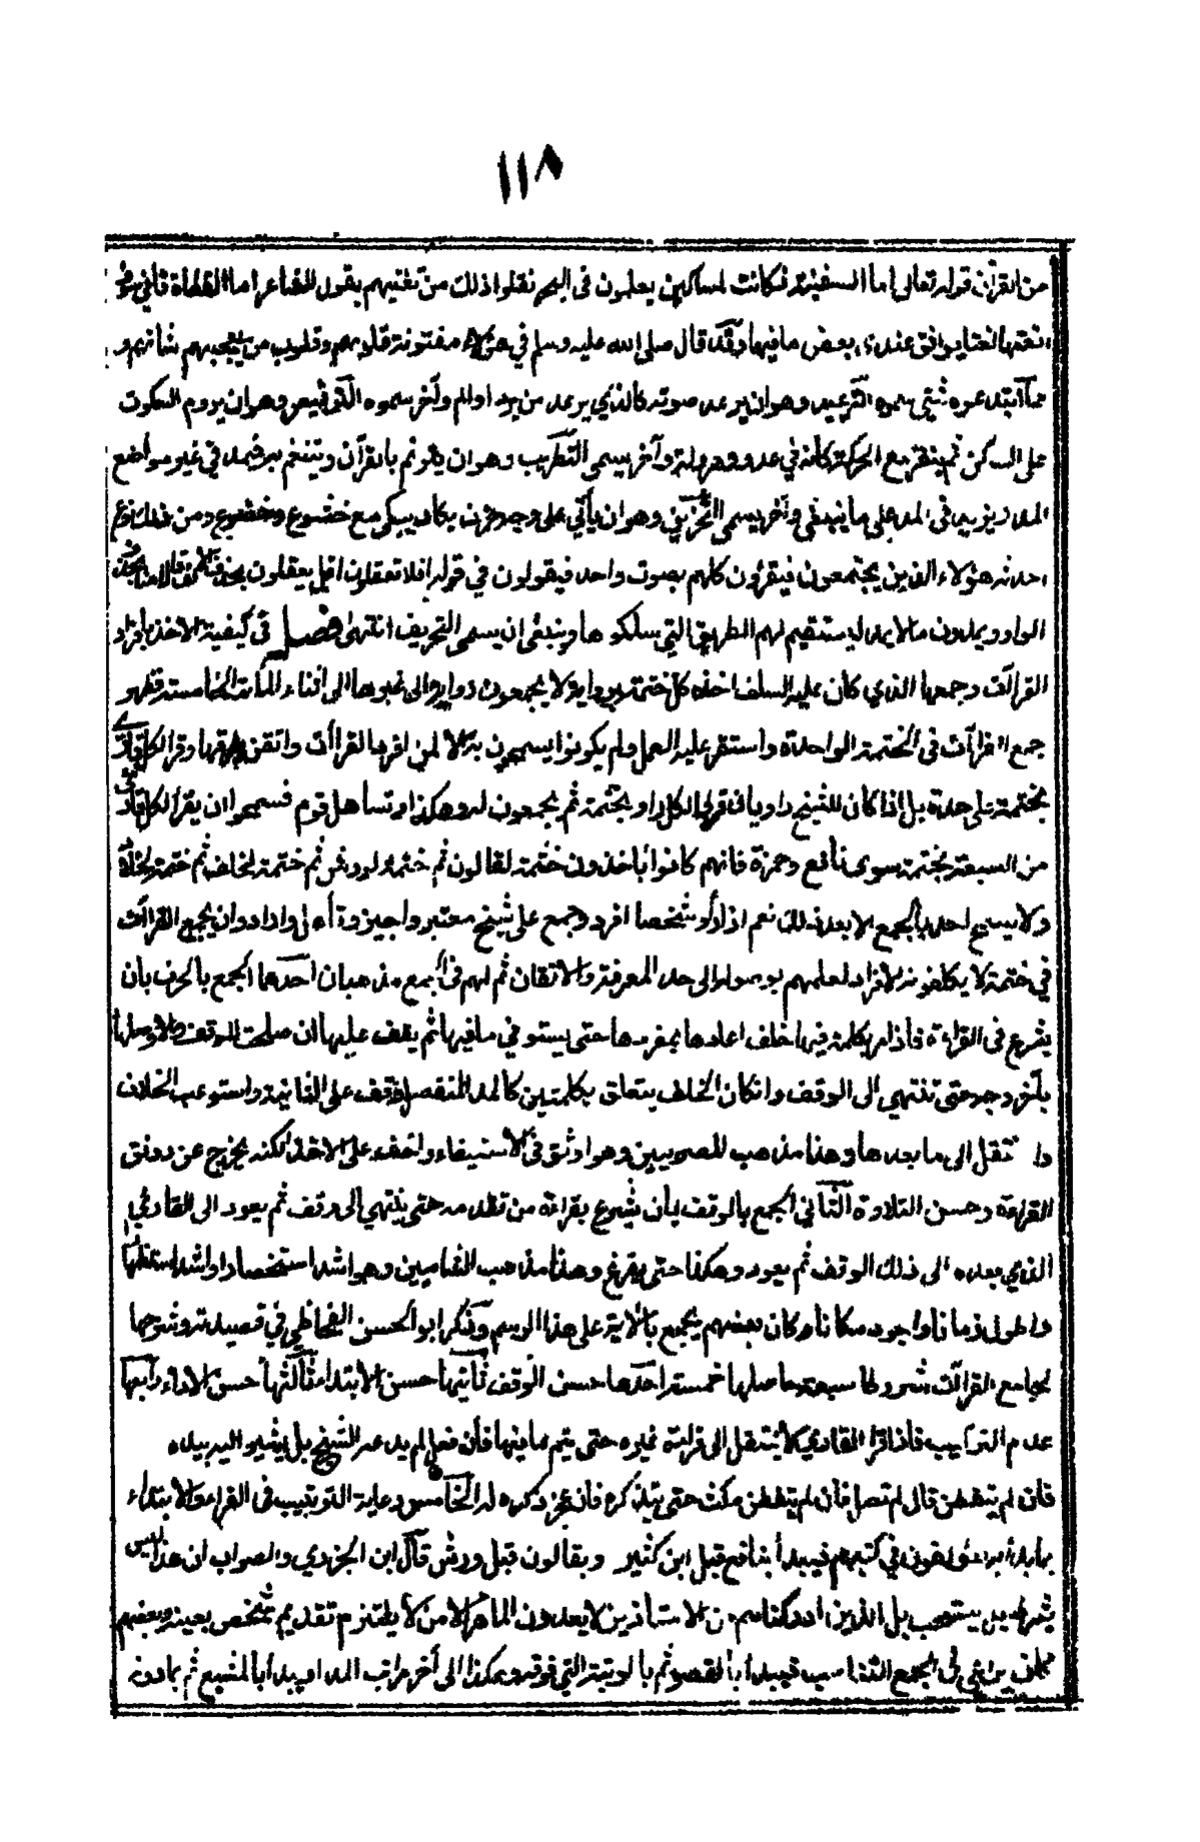 ١١٨
من القرآن قوله تعالى اما السفينة فكانت لمساكين يعلمون فى البحر نقلوا ذلك من تغنيهم بقول الشاعر اما القطاة فانى سوف
انعتها نعتا يوافق عندى بعض ما فيها وقد قال صلى الله عليه وسلم في هؤلاء مفتونة قلوبهم وقلوب من يعجبهم شانهم و
مما ابتدعوه شئ سموه الترعيد وهو ان يرعد صوته كالذي يرعد من برد او الم وآخر سموه الترقيص وهو ان يروم السكوت
على الساكن ثم ينفر مع الحركة كانه في عدو وهرولة وآخر يسمى التطريب وهو ان يترنم بالقرآن ويتنغم به فيمد في غير مواضع
المد ويزيد فى المد على ما ينبغى وآخر يسمى التحزين وهو ان يأتي على وجه حزين يكاد يبكى مع خشوع وخضوع ومن ذلك نوع
احدثه هؤلاء الذين يجتمعون فيقرؤن كلهم بصوت واحد فيقولون في قوله افلا تعقلون افل يعقلون بحذف الالف قال امنا بحذف
الواو ويمدون ما لا يمد ليستقيم لهم الطريق التي سلكوها وينبغى ان يسمى التحريف انتهى فصل في كيفية الاخذ بافراد
القرآات وجمعها الذي كان عليه السلف اخذ كل ختمة برواية لا يجمعون رواية الى غيرها الى اثناء المائة الخامسة فظهر
جمع القرآات فى الختمة الواحدة واستقر عليه العمل ولم يكونوا يسمحون به الا لمن افرد القرأات واتقن طرقها وقرأ لكل قارئ
بختمة على حدة بل اذا كان للشيخ راويان قرؤا لكل راو بختمة ثم يجمعون له وهكذا وتساهل قوم فسمحوا ان يقرأ لكل قارئ
من السبعة بختمة سوى نافع وحمزة فانهم كانوا يأخذون ختمة لقالون ثم ختمة لورش ثم ختمة لخلف ثم ختمة لخلاد
ولا يسمح احد بالجمع الا بعد ذلك نعم اذا رأوا شخصا افرد وجمع على شيخ معتبر واجيز وتأهل واراد ان يجمع القرآات
في ختمة لا يكلفونه الافراد لعلمهم بوصوله الى حد المعرفة والاتقان ثم لهم فى الجمع مذهبان احدهما الجمع بالحرف بان
يشرع فى القراءة فاذا مر بكلمة فيها خلف اعادها بمفردها حتى يستوفي ما فيها ثم يقف عليها ان صلحت للوقف والا وصلها
بآخر وجه حتى تنتهي الى الوقف وان كان الخلف يتعلق بكلمتين كالمد المنفصل وقف على الثانية واستوعب الخلاف
وانتقل الى ما بعدها وهذا مذهب المصريين وهو اوثق فى الاستيفاء واخف على الاخذ لكنه يخرج عن رونق
القراءة وحسن التلاوة الثانى الجمع بالوقف بأن يشرع بقراءة من قدمه حتى ينتهي الى وقف ثم يعود الى القارئ
الذي بعده الى ذلك الوقف ثم يعود وهكذا حتى يفرغ وهذا مذهب الشاميين وهو اشد استحضارا واشد استظهارا
واطول زمانا واجود مكانا وكان بعضهم يجمع بالآية على هذا الرسم وذكر ابو الحسن القيجاطي في قصيدته وشرحها
لجامع القرآات شروطا سبعة حاصلها خمسة احدها حسن الوقف ثانيها حسن الابتداء ثالثها حسن الاداء رابعها
عدم التركيب فاذا قرأ القارئ لا ينتقل الى قراءة غيره حتى يتم ما فيها فأن فعل لم يدعه الشيخ بل يشير اليه بيده
فان لم يتفطن قال لم تصل فان لم يتفطن مكث حتى يتذكر فان عجز ذكره له الخامس رعاية الترتيب فى القراءة والابتداء
بما بدأ به المؤلفون في كتبهم فيبدأ بنافع قبل ابن كثير وبقالون قبل ورش قال ابن الجزري والصواب ان هذا ليس
بشرط بل يستحب بل الذين ادركناهم من الاستاذين لا يعدون الماهر الا من لا يلتزم تقديم شخص بعينه وبعضهم
كان يراعي فى الجمع التناسب فيبدأ بالقصر ثم بالرتبة التي فوقه وهكذا الى آخر مراتب المد او يبدأ بالمشبع ثم بما دونه